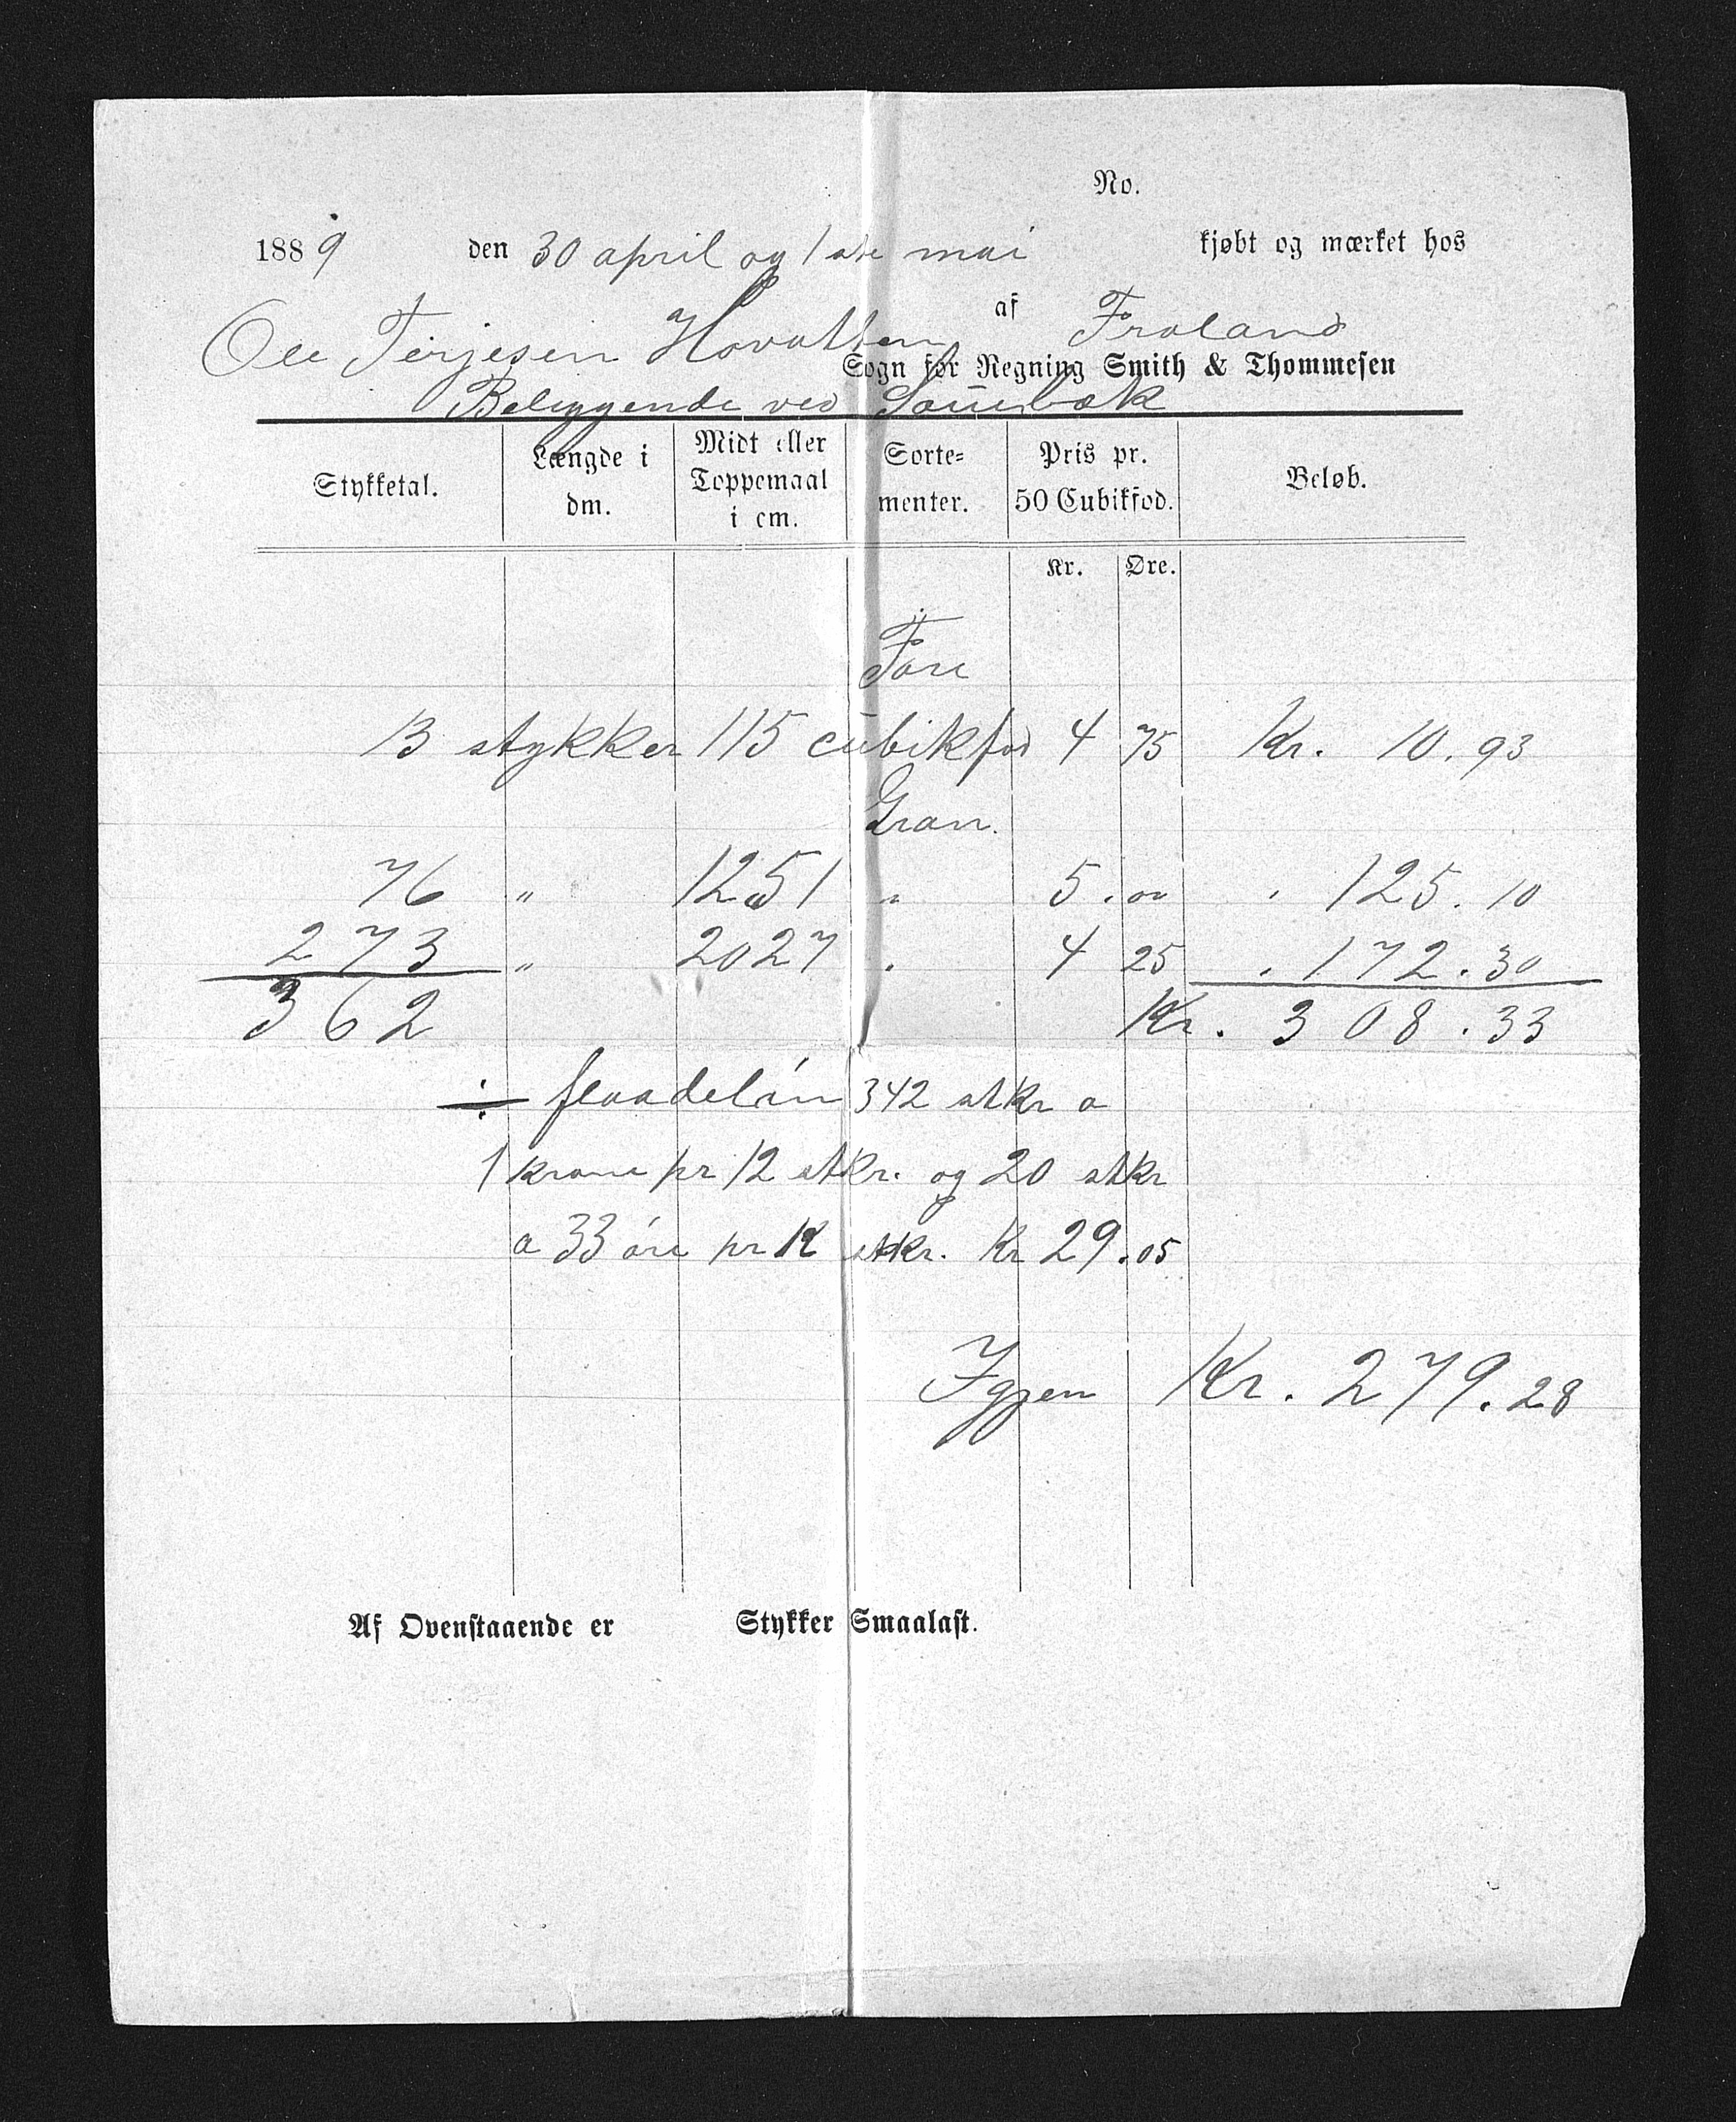 No.
1889 den 30 april og 1ste mai kjøbt og mærket hos
Ole Terjesen Hovatten af Froland
Sogn for Regning Smith & Thommesen
Beliggende ved Sauebæk
Stykketal. Længde i dm. Midt eller Toppemaal i cm. Sorte-menter. Pris pr. 50 Cubikfod. Beløb.
Kr. Øre.
Furu
13 stykker 115 cubikfod 4 75 Kr. 10.93
Gran.
76 " 1251 " 5.00 " 125.10
273 " 2027 " 4 25 " 172.30
362 Kr. 308.33
÷ flaadelön 342 stkr a
1 krone pr 12 stkr. og 20 stkr
a 33 öre pr 12 stkr. Kr 29.05
Igjen Kr. 279.28
Af Ovenstaaende er Stykker Smaalast.